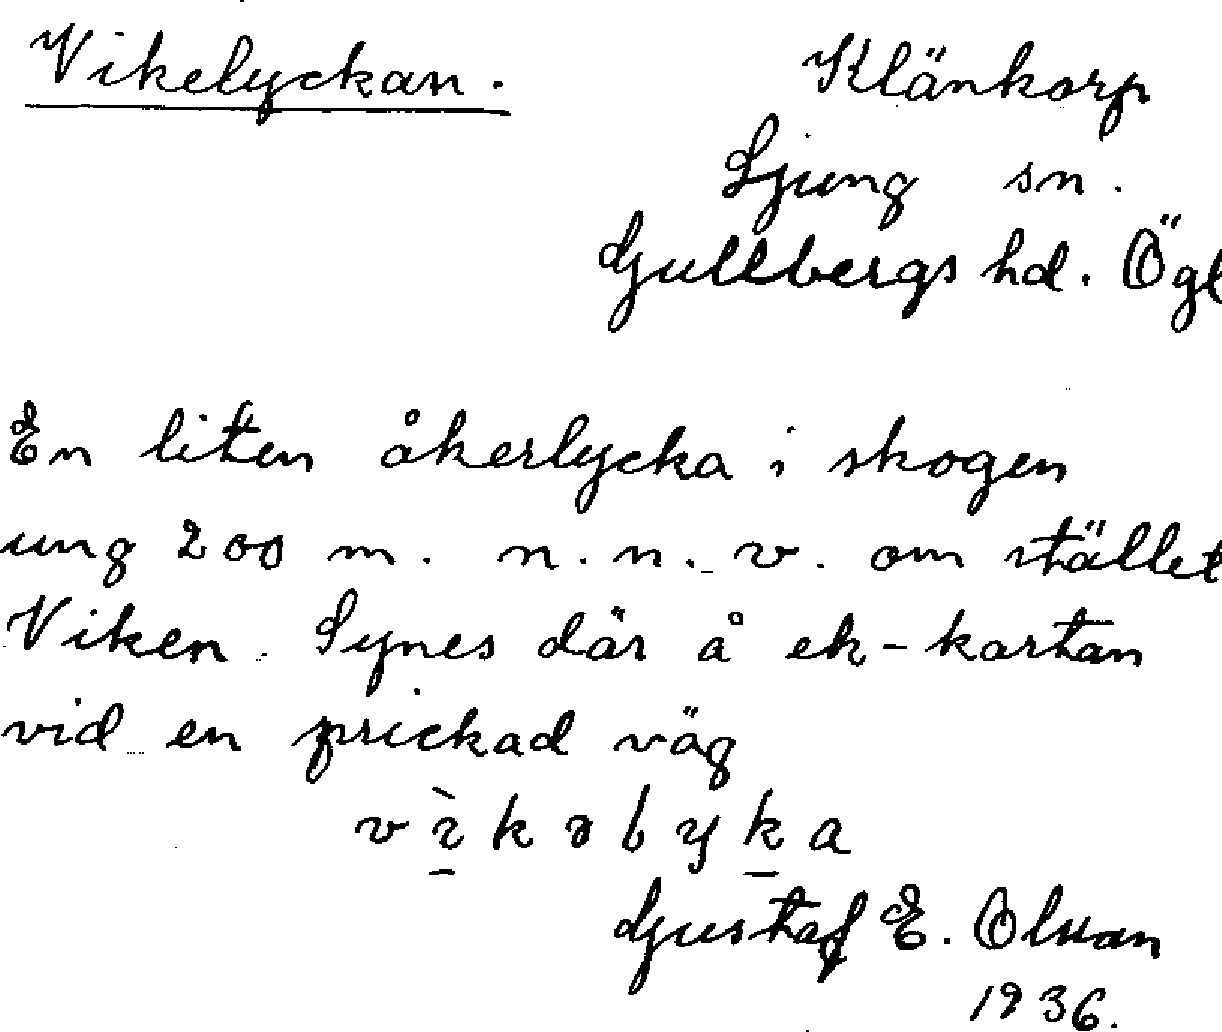 Vikelyckan. Klänkorp
Ljung sn.
Gullbergs hd. Ögl
En liten åkerlycka i skogen
ung 200 m. n.n.v. om stället
Viken. Synes där å ek-kartan
vid en prickad väg
Gustaf E. Olsson
1936.